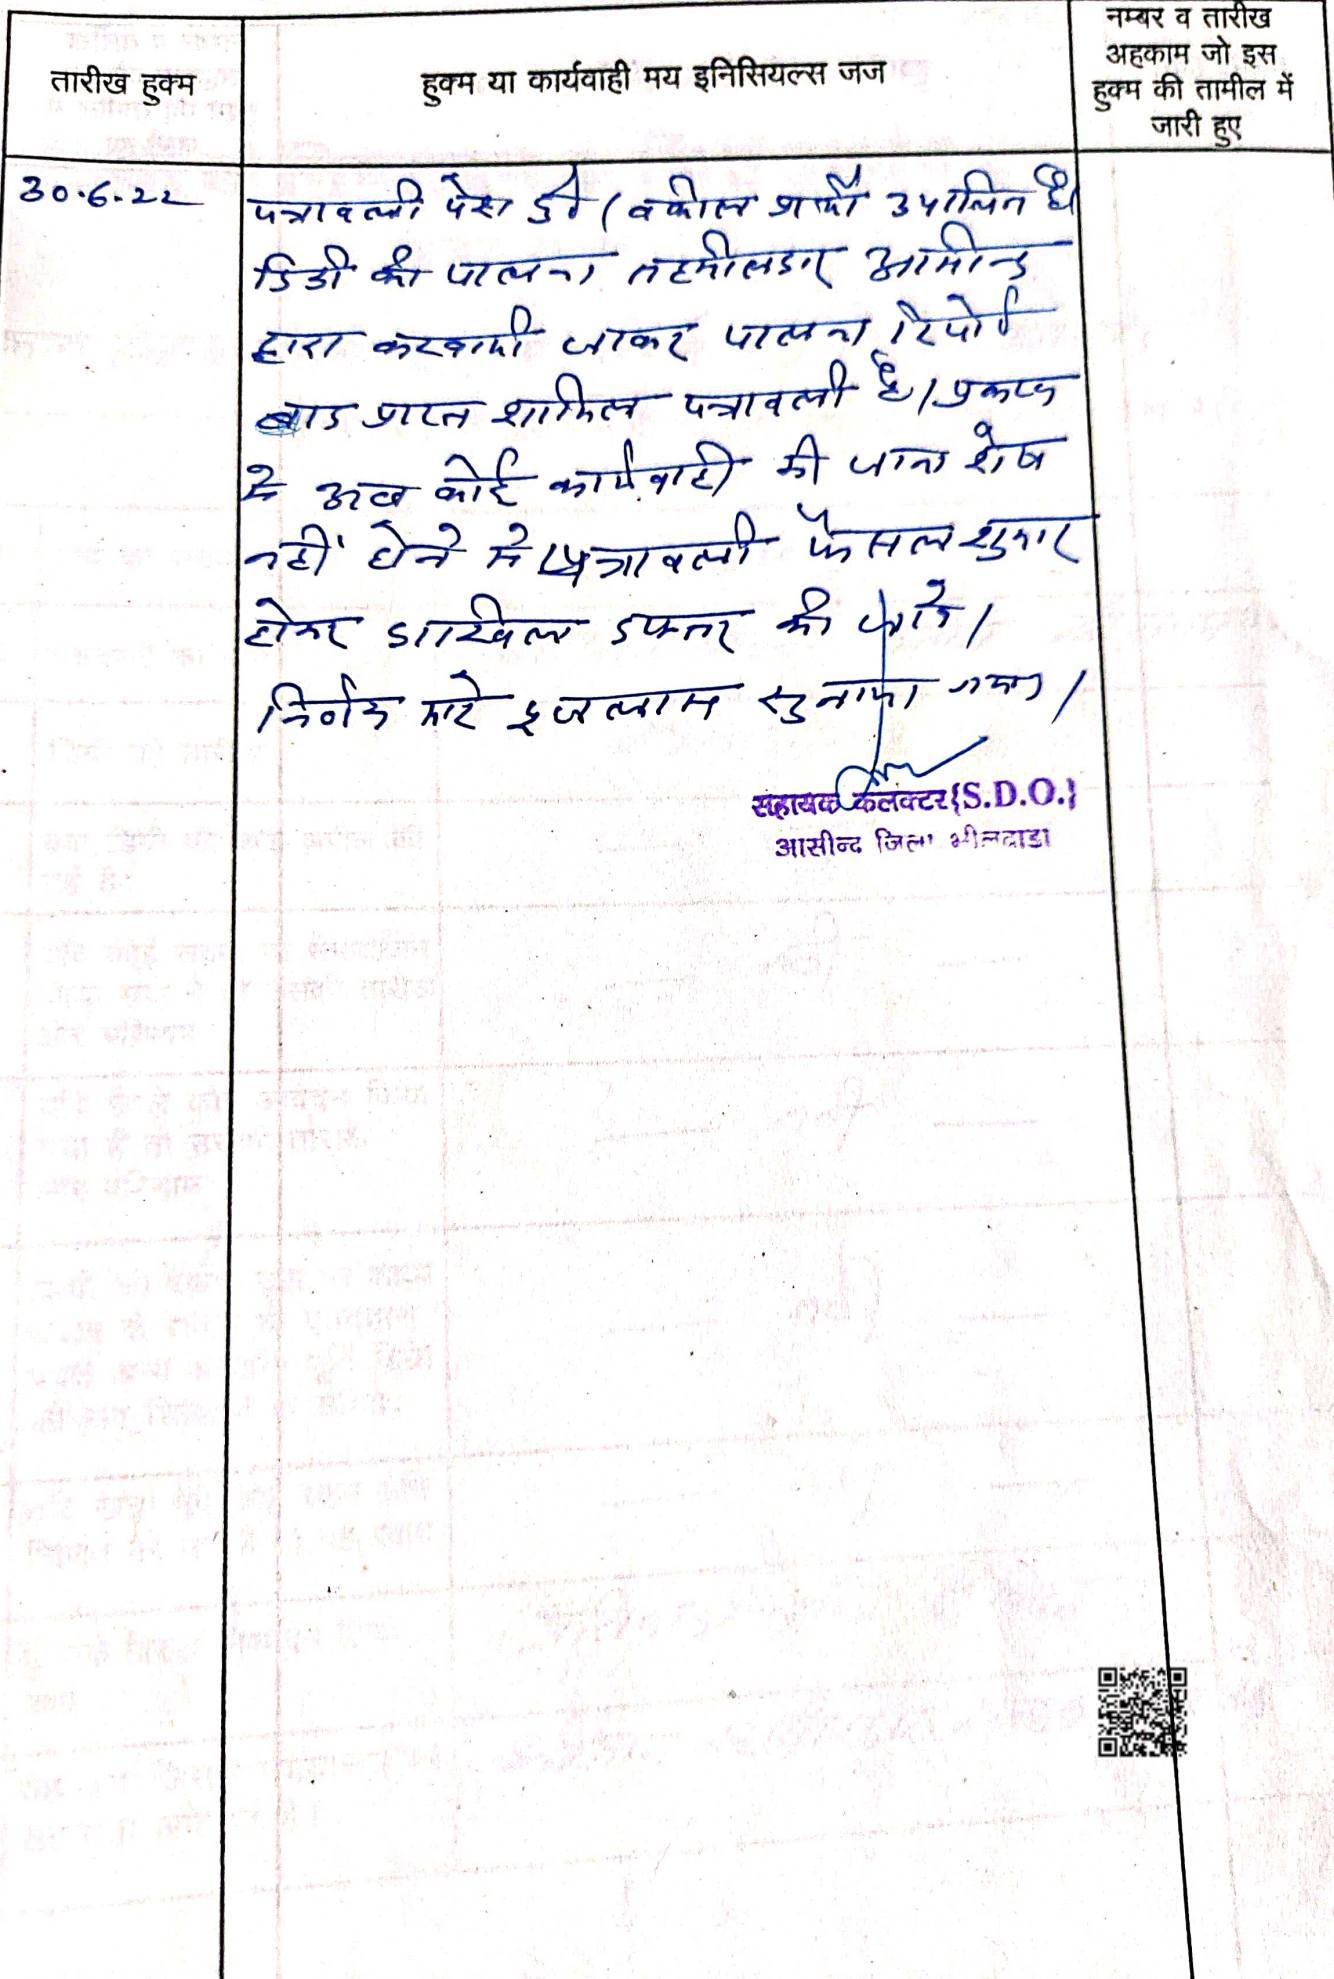 तारीख हुक्म
हुक्म या कार्यवाही मय इनिसियल्स जज
नम्बर व तारीख
अहकाम जो इस
हुक्म की तामील में
जारी हुए
30.6.22
पत्रावली पेश हुई। वकील प्रार्थी उपस्थित है।
डिक्री की पालना तहसीलदार आसीन्द
द्वारा करवायी जाकर पालना रिपोर्ट
बाद प्राप्त शामिल पत्रावली है। प्रकरण
मे अब कोई कार्यवाही की जाना शेष
नहीं होने से पत्रावली फैसल शुमार
होकर दाखिल दफ्तर की जावे।
निर्णय सरे इजलास सुनाया गया।
सहायक कलक्टर{S.D.O.}
आसीन्द जिला भीलवाडा